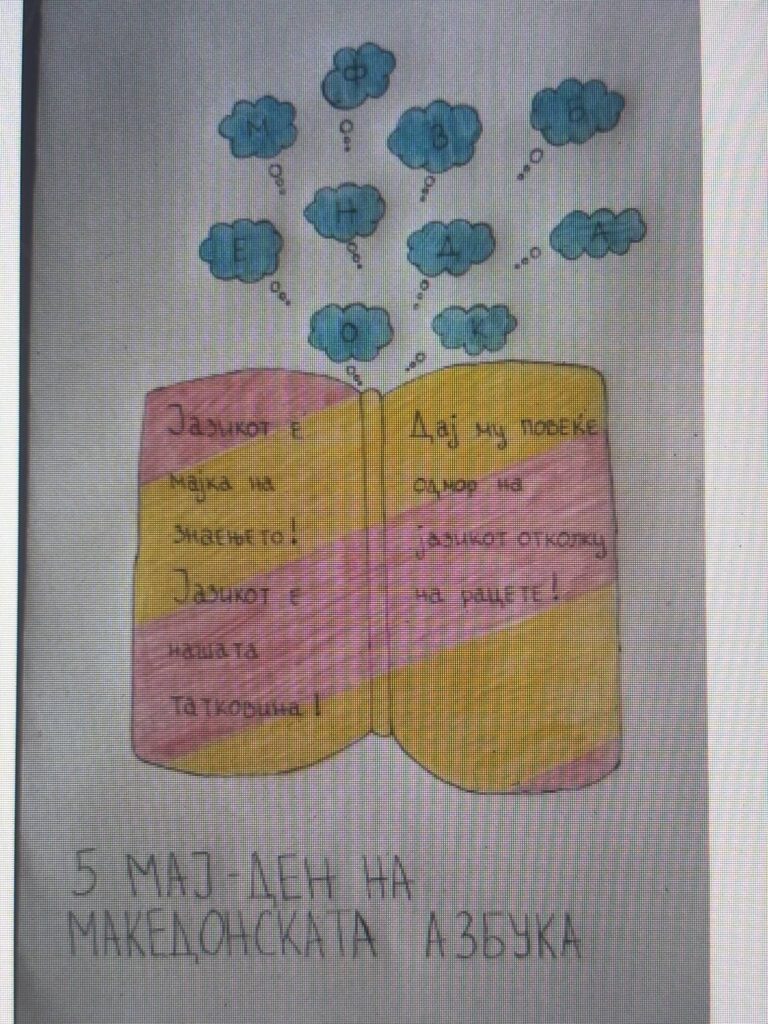 Ф
М
З
Б
Н
Е
Д
А
О
К
Јазикот е
мајка на
знаењето!
Јазикот е
нашата
татковина!
Дај му повеќе
одмор на
јазикот отколку
на рацете!
5 МАЈ-ДЕН НА
МАКЕДОНСКАТА АЗБУКА